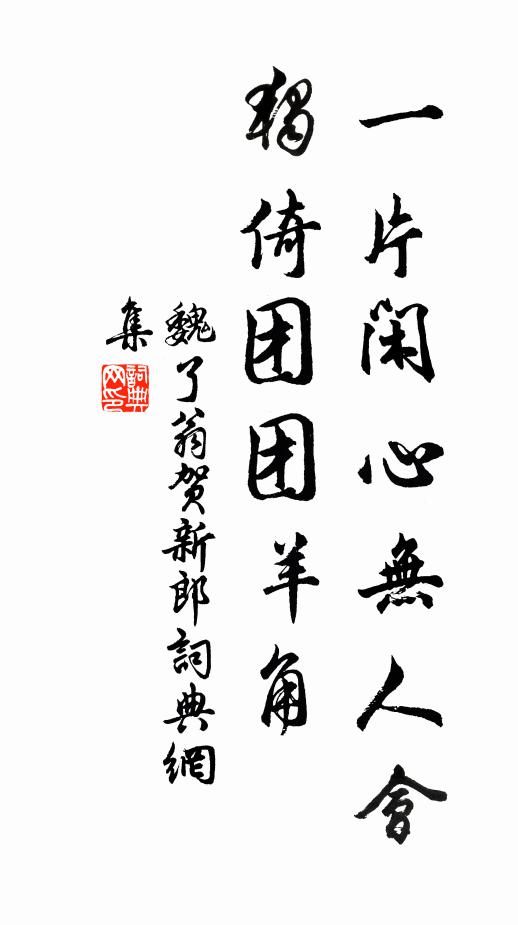 一片閑心無人會
獨倚团团羊角
魏了翁贺新郎詞典網
集
詞典
网印